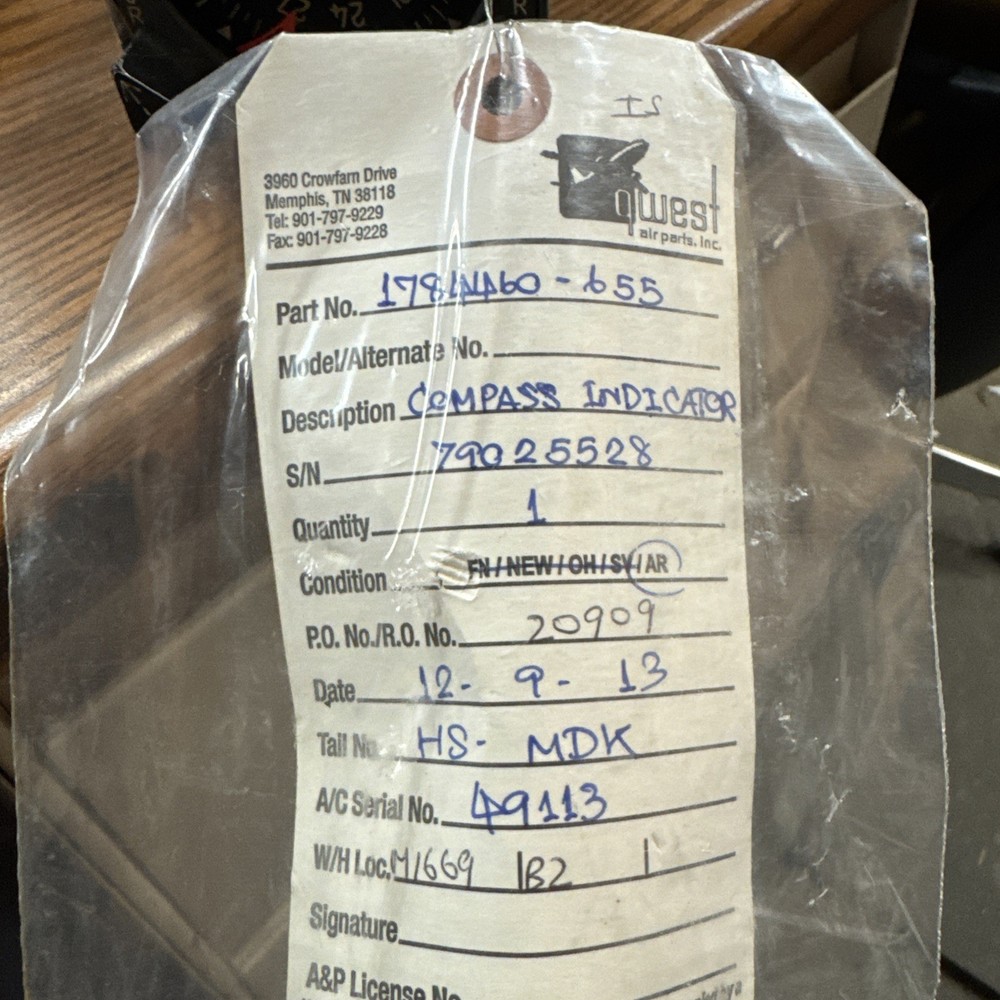 24
IS
3960 Crowfarn Drive
Memphis, TN 38118
Tel: 901-797-9229
Fax: 901-797-9228
qwest
air parts, inc.
Part No. 1784460-655
Model/Alternate No.
Description COMPASS INDICATOR
S/N 79025528
Quantity 1
Condition FN / NEW / OH / SV / AR
P.O. No./R.O. No. 20909
Date 12- 9- 13
Tail No. HS- MDK
A/C Serial No. 49113
W/H Loc. M1669 1B2 1
Signature
A&P License No